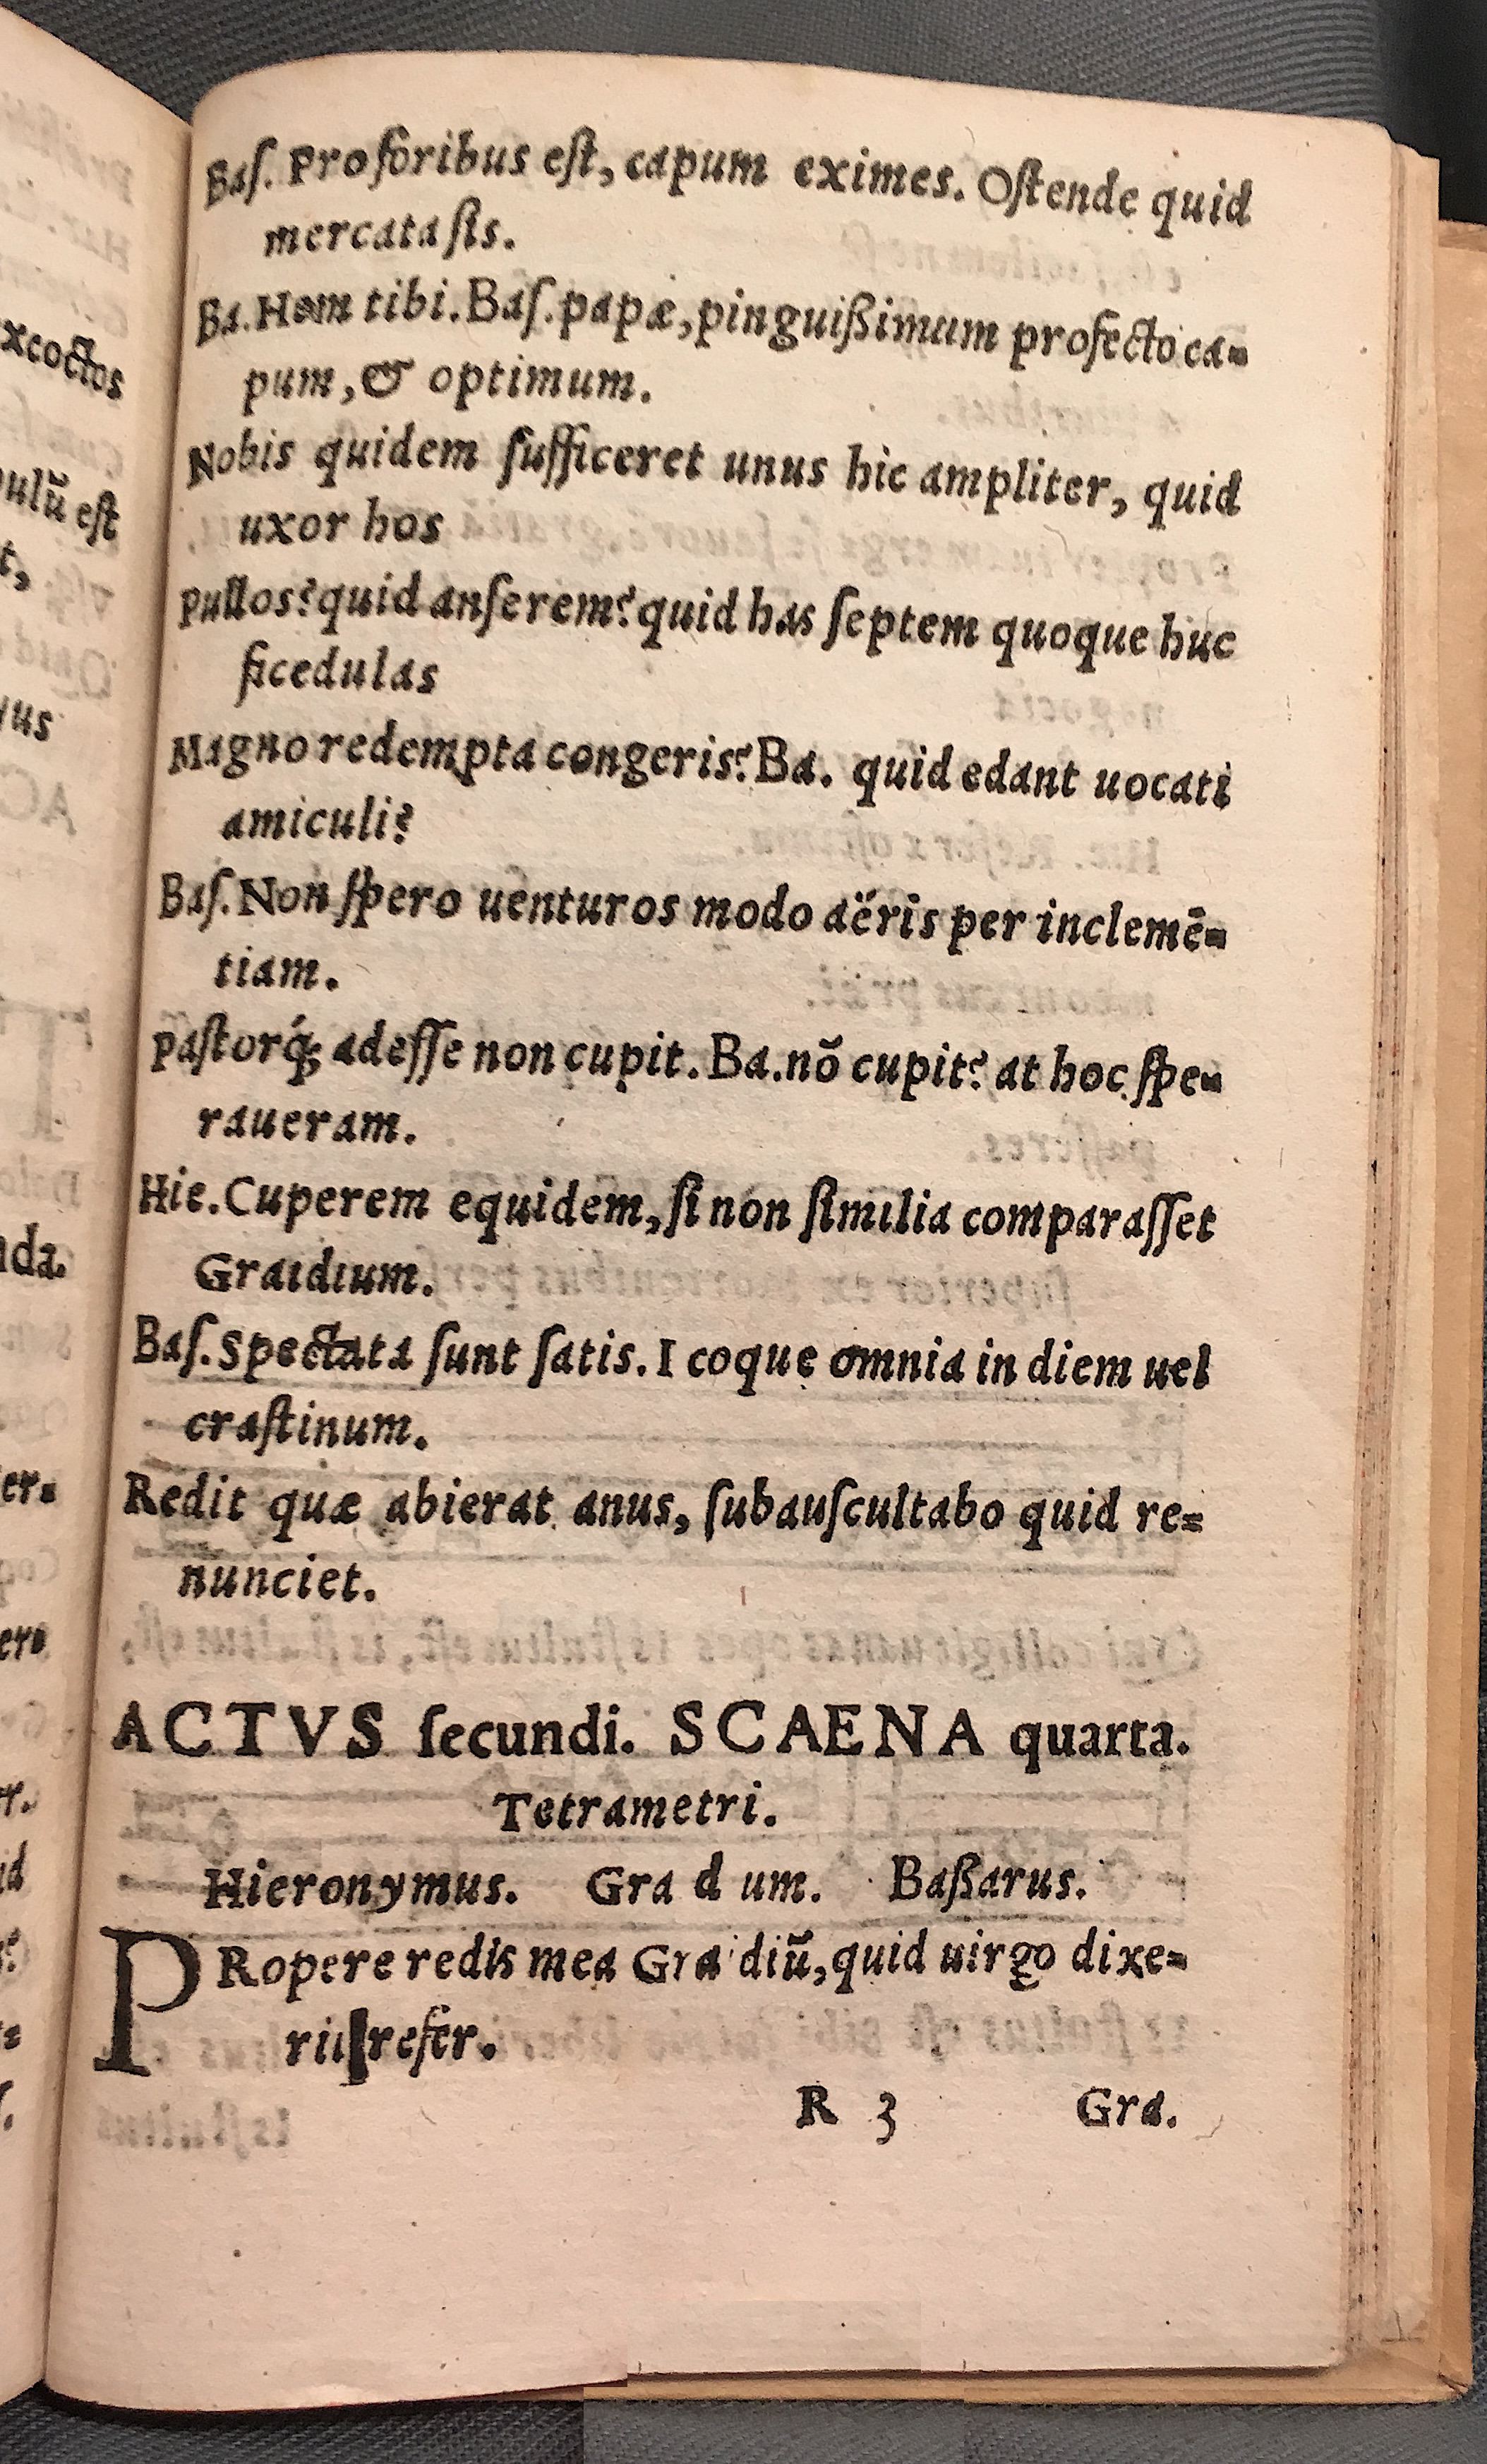 Baſ. Pro foribus eſt, capum eximes. Oſtende quid
mercata ſis.
Ba. Hem tibi. Baſ. papæ, pinguißimum profecto ca-
pum, & optimum.
Nobis quidem ſufficeret unus hic ampliter, quid
uxor hos
Pullos? quid anſerem? quid has ſeptem quoque huc
ficedulas
Magno redempta congeris? Ba. quid edant uocati
amiculi?
Baſ. Non ſpero uenturos modo aëris per inclemē-
tiam.
Paſtorq́; adeſſe non cupit. Ba. nō cupit? at hoc ſpe-
raueram.
Hie. Cuperem equidem, ſi non ſimilia comparaſſet
Graidium.
Baſ. Spectata ſunt ſatis. I coque omnia in diem uel
craſtinum.
Redit quæ abierat anus, ſubauſcultabo quid re-
nunciet.
ACTVS ſecundi. SCAENA quarta.
Tetrametri.
Hieronymus. Gra d um. Baßarus.
PRopere redis mea Gra diū, quid uirgo dixe-
rit refer.
R 3 Gra.
xcoctos
ulū eſt
t,
us
da.
er-